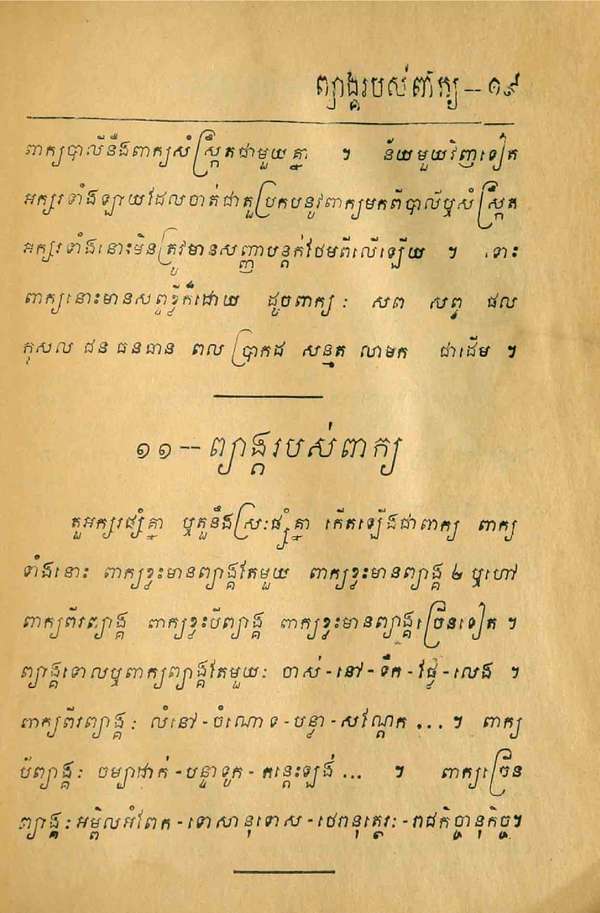 ព្យាង្គរបស់ពាក្យ – ១៩
ពាក្យបាលីនឹងពាក្យសំស្ក្រឹតជាមួយគ្នា ។ ន័យមួយវិញទៀត
អក្សរទាំងឡាយដែលចាត់ជាតួប្រកបនូវពាក្យមកពីបាលីឬសំស្ក្រឹត
អក្សរទាំងនោះមិនត្រូវមានសញ្ញាបន្តក់ថែមពីលើឡើយ ។ ទោះ
ពាក្យនោះមានសព្ទខ្លីក៏ដោយ ដូចពាក្យ : សព សព្ទ ផល
កុសល ជន ធនធាន ពល ប្រាកដ សន្មត លាមក ជាដើម ។
១១ – ព្យាង្គរបស់ពាក្យ
តួអក្សរផ្សំគ្នា ឬតួនឹងស្រះផ្សំគ្នា កើតឡើងជាពាក្យ ពាក្យ
ទាំងនោះ ពាក្យខ្លះមានព្យាង្គតែមួយ ពាក្យខ្លះមានព្យាង្គ ២ ឬហៅ
ពាក្យពីរព្យាង្គ ពាក្យខ្លះបីព្យាង្គ ពាក្យខ្លះមានព្យាង្គច្រើនទៀត ។
ព្យាង្គទោលឬពាក្យព្យាង្គតែមួយ: ចាស់ - នៅ - ទឹក - ផ្ទៃ - លេង ។
ពាក្យពីរព្យាង្គ : លំនៅ - ចំណោទ - បន្ទា - សណ្ដែក ... ។ ពាក្យ
បីព្យាង្គ : ចម្បាជាក់ - បន្ទាទូក - កន្ដេះឡង់ ... ។ ពាក្យច្រើន
ព្យាង្គ : អម្ពិលអំពែក - ទោសានុទោស - ថេរានុត្ថេរៈ - រាជកិច្ចានុកិច្ច។